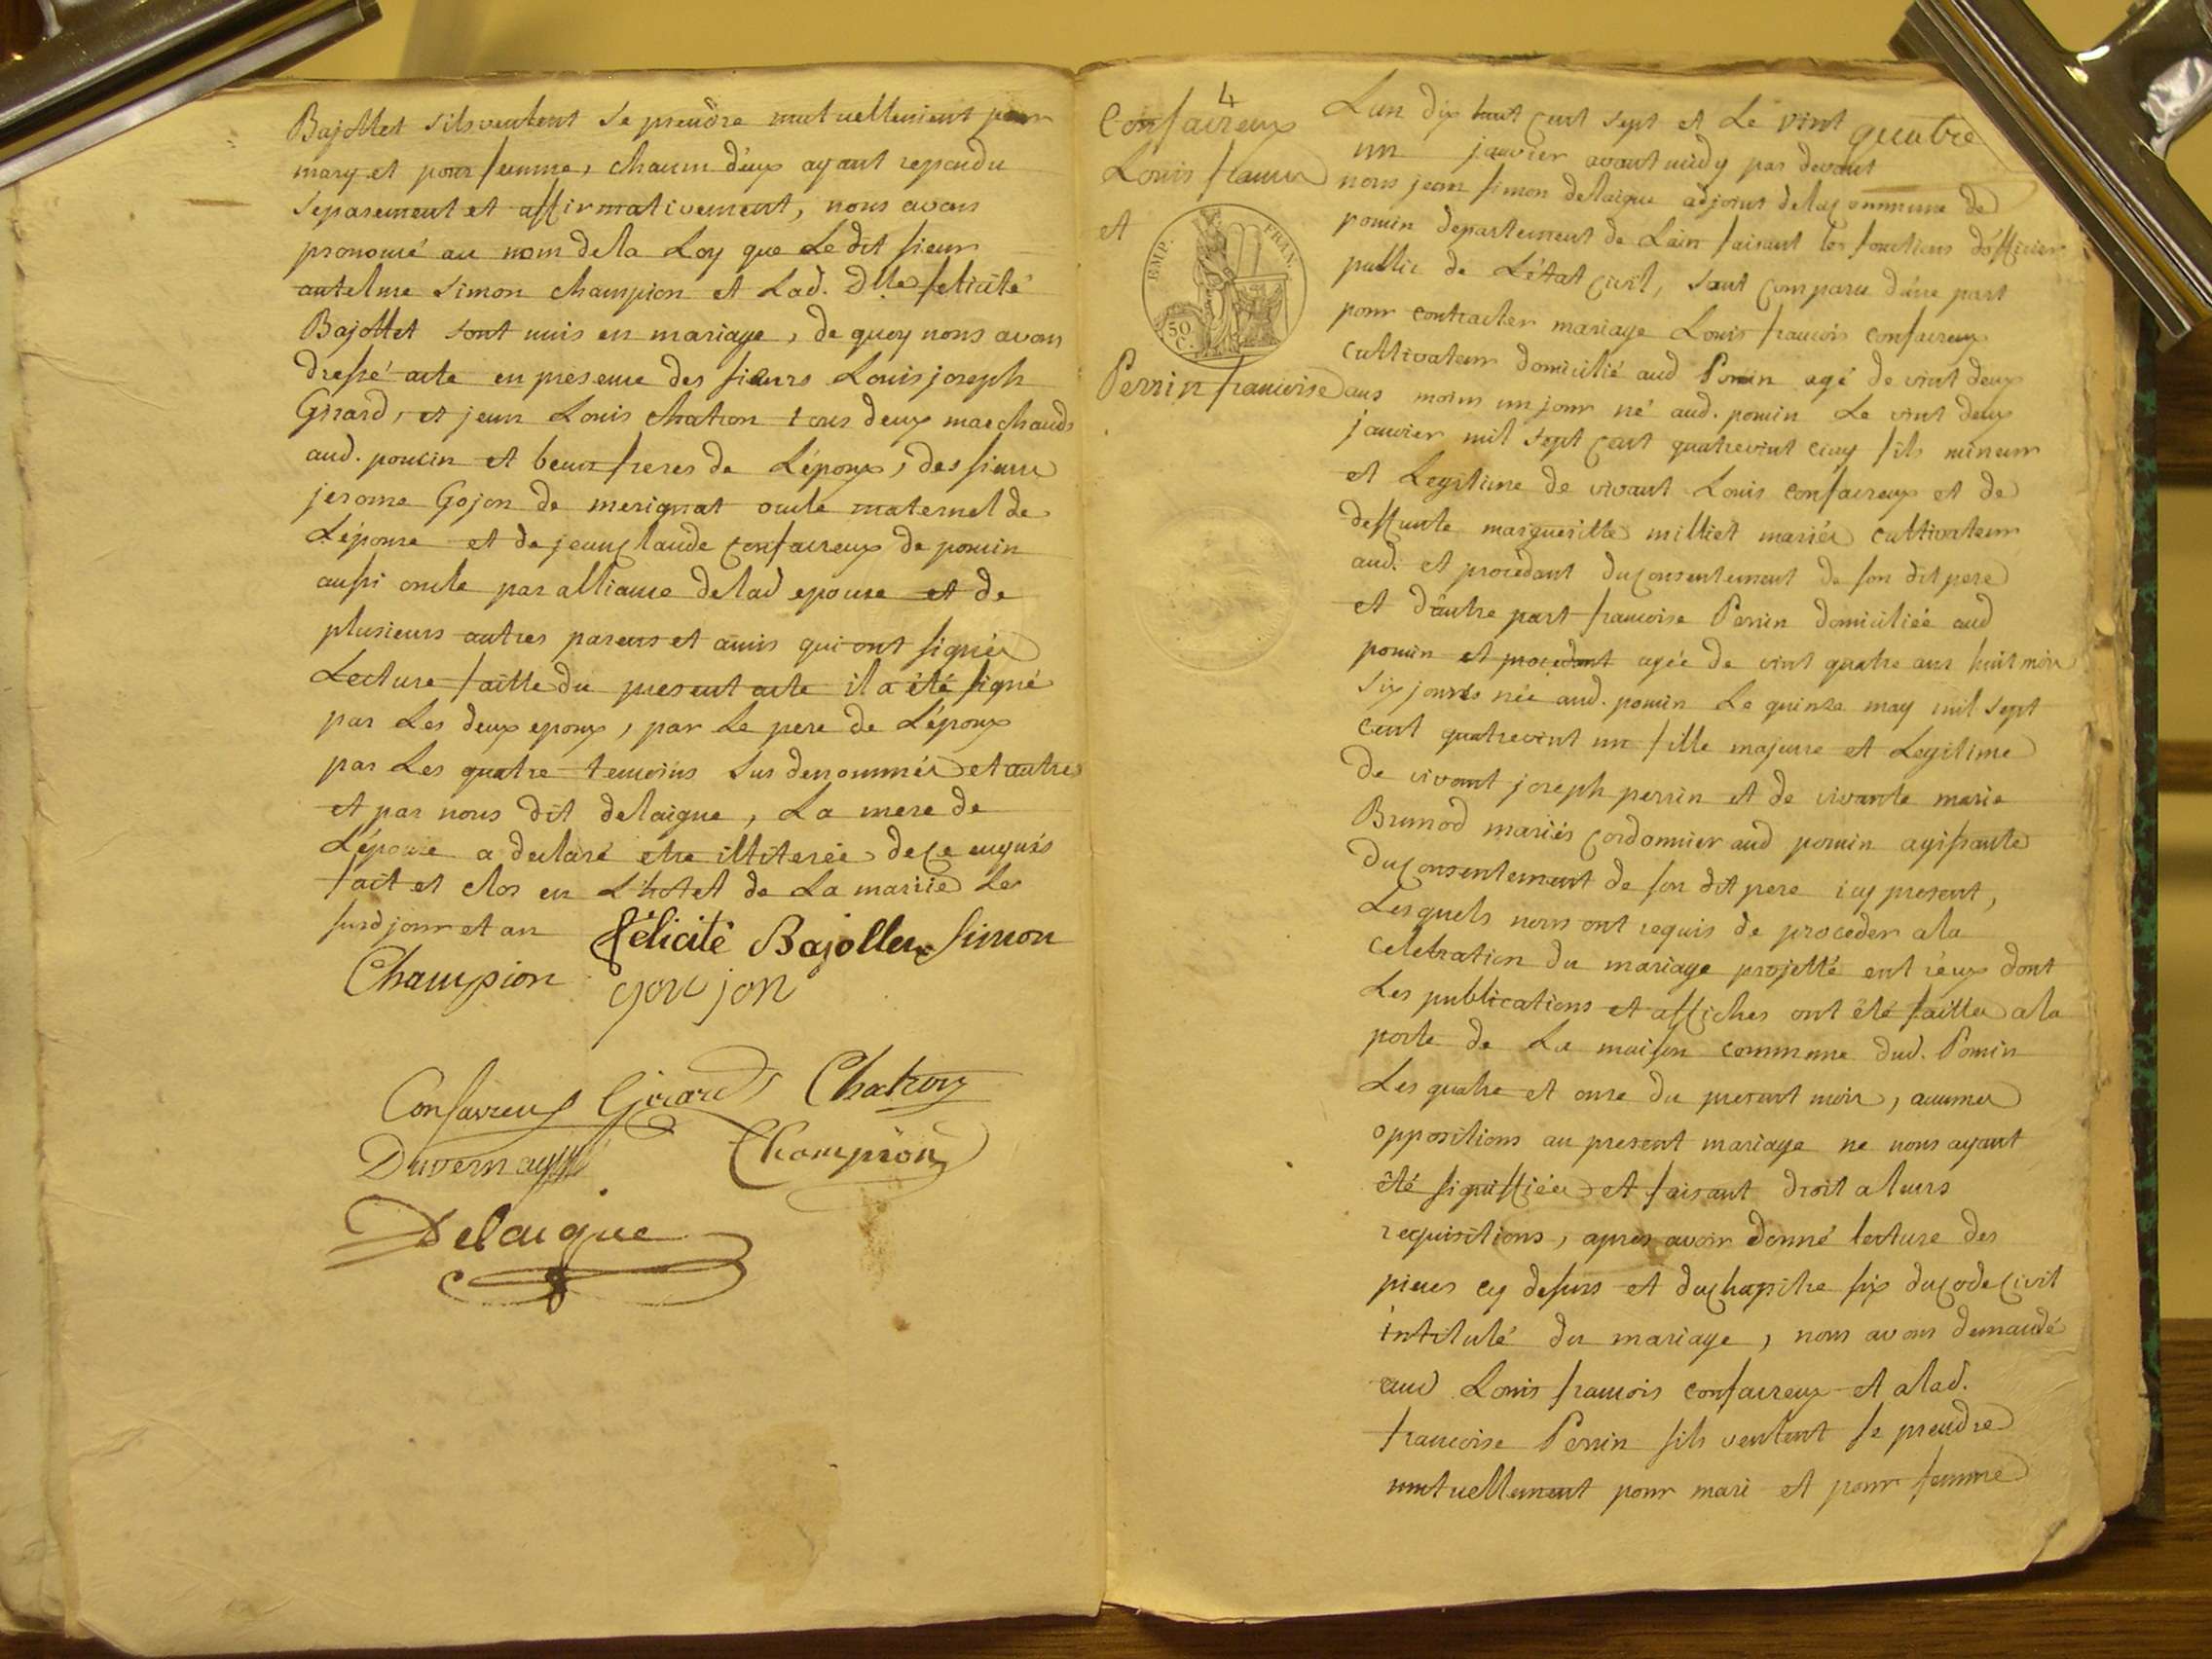 Bajollet silsveulent se prendre mutuellement pour
mary et pour femme, chacun d'eux ayant repondu
separement et affirmativement, nous avons
prononcé au nom de la Loy que Le dit sieur
antelme Simon champion et Lad. Dlle felicité
Bajollet sont unis en mariage, de quoy nous avons
dressé acte en presence des sieurs Louis joseph
Girard, et jean Louis chatron tous deux marchands
aud. poncin et beau freres de L'époux, des sieurs
jerome Gojon de merignat oncle maternel de
L'épouse et de jeanclaude confavreux de poncin
aussi oncle par alliance delad epouse et de
plusieurs autres parens et amis qui ont signés
Lecture faitte du present acte il a été signé
par Les deux epoux, par Le pere de L'époux
par Les quatre temoins sus denommés et autres
et par nous dit delaigue, La mere de
L'épouse a declaré etre illiterée dece enquis
fait et clos en L'hotel de La mairie les
susd jour et an félicité Bajollet Simon
Champion goujon
Confavreux Girard Chatron
Duvernay Champion
Delaigue
4
quatre
Confavreux
Louis francois
et
EMP. FRAN.
50 C.
Perrin francoise
Lan dix huit cent sept et Le vint
un janvier avant midy par devant
nous jean simon delaigue adjoint delacommune de
poncin departement de Lain faisant les fonctions d'officier
public de L'état civil, sont comparu d'une part
pour contracter mariage Louis francois confavreux
cultivateur domicilié aud Poncin agé de vint deux
ans moins un jour né aud. poncin Le vint deux
janvier mil sept cent quatrevint cinq fils mineur
et Legitime de vivant Louis confavreux et de
deffunte margueritte milliet mariés cultivateur
aud. et procedant duconsentement de son dit pere
et d'autre part francoise Perrin domiciliée aud
poncin et procedant agée de vint quatre ans huit mois
six jours née aud. poncin Le quinze may mil sept
cent quatrevint un fille majeure et Legitime
de vivant joseph perrin et de vivante marie
Brunod mariés cordonnier aud poncin agissante
duconsentement de son dit pere icy present,
Lesquels nous ont requis de proceder ala
celebration du mariage projetté entr'eux dont
Les publications et affiches ont été faittes ala
porte de La maison commune dud. Poncin
Les quatre et onse du present mois, aucunes
oppositions au present mariage ne nous ayant
été signiffiées et faisant droit aleurs
requisitions, apres avoir donné lecture des
pieces cy dessus et duchapitre six ducodecivil
intitulé du mariage, nous avons demandé
aud Louis francois confavreux et alad.
francoise Perrin sils veulent se prendre
mutuellement pour mari et pour femme